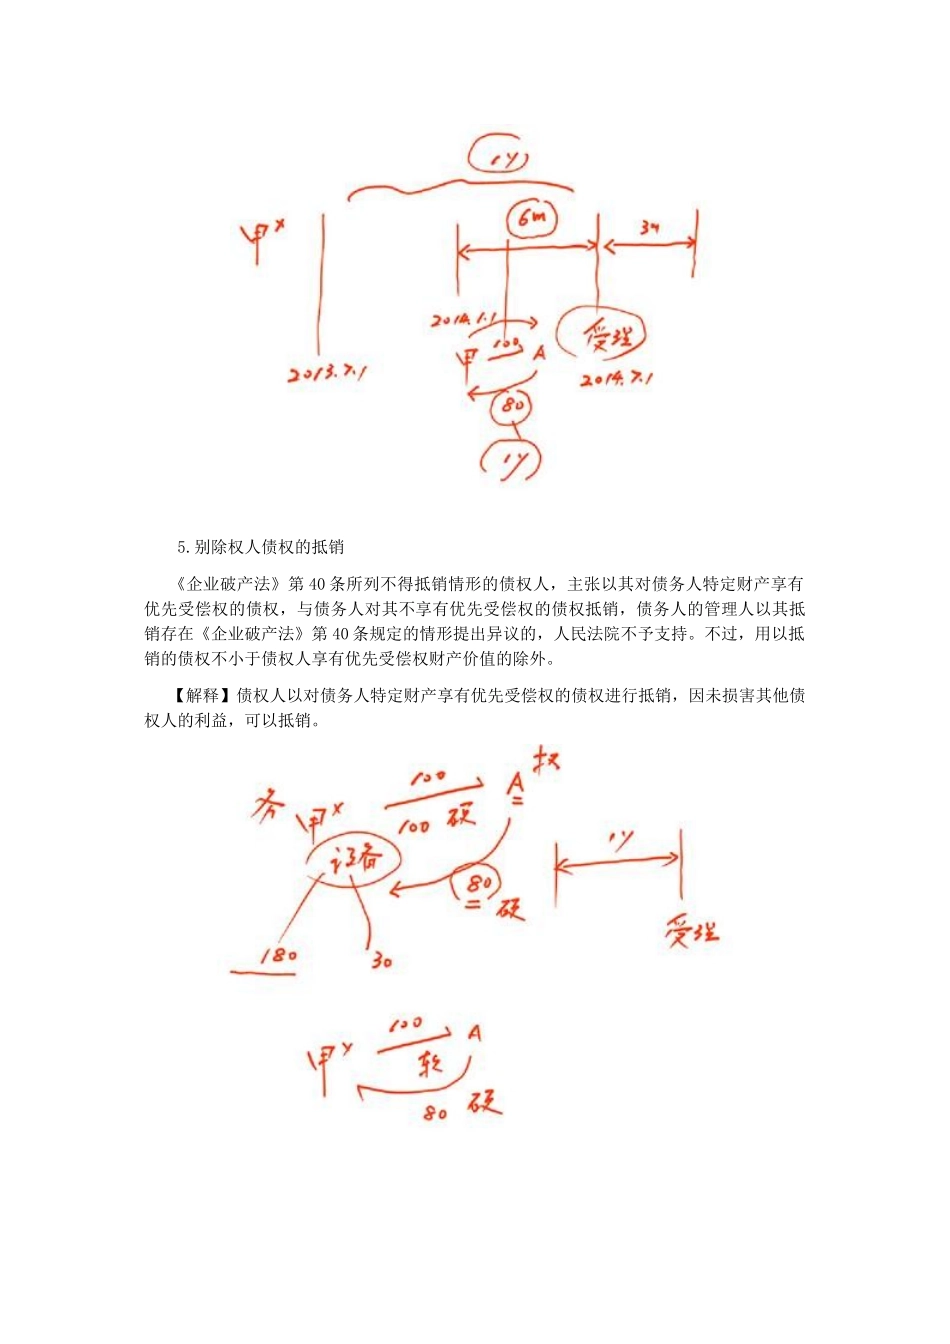 1y
6m
3y
甲x
2014.1.1
甲 100 A
受理
2013.7.1
2014.7.1
80
1y
5.别除权人债权的抵销
《企业破产法》第 40 条所列不得抵销情形的债权人，主张以其对债务人特定财产享有
优先受偿权的债权，与债务人对其不享有优先受偿权的债权抵销，债务人的管理人以其抵
销存在《企业破产法》第 40 条规定的情形提出异议的，人民法院不予支持。不过，用以抵
销的债权不小于债权人享有优先受偿权财产价值的除外。
【解释】债权人以对债务人特定财产享有优先受偿权的债权进行抵销，因未损害其他债
权人的利益，可以抵销。
务 甲x 100 A 权
100 硬
设备
1y
80 硬
受理
180 30
甲x 100 A
软
80 硬